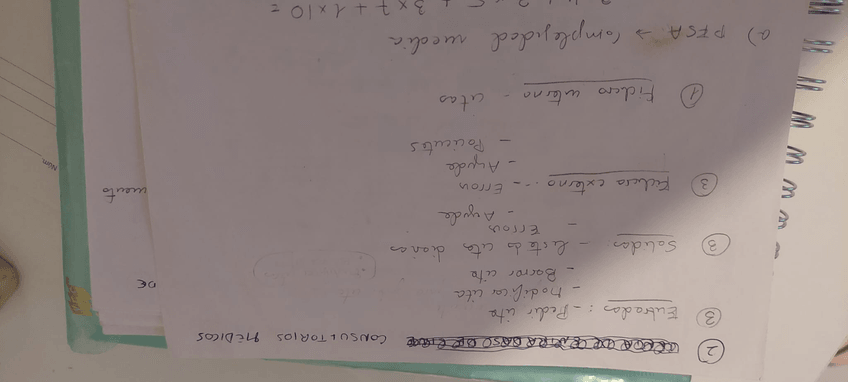 2 CONSULTORIOS MÉDICOS
3 Entradas: - Pedir cita
- Modificar cita
- Borrar cita
3 Salidas - Lista de citas diarias
- Errores
- Ayuda
3 Fichero externo - Errores
- Ayuda
- Pacientes
1 Fichero interno - citas
a) PFSA → Complejidad media
3 x 7 + 1 x 10 =
DE
umento
Núm